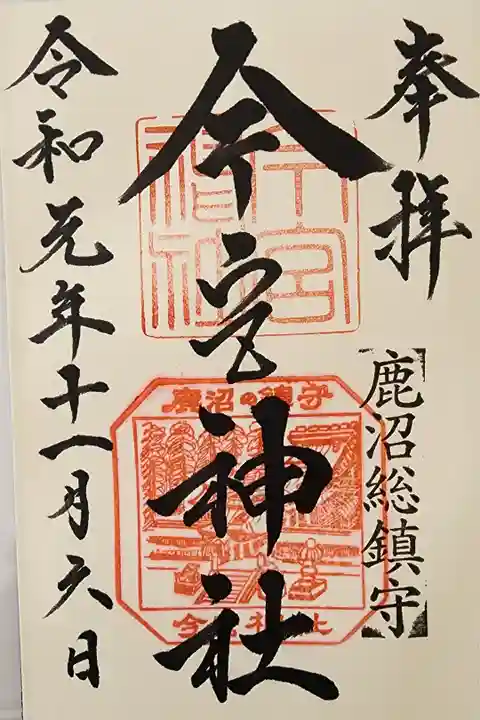 奉拝
鹿沼総鎮守
今宮神社
今宮神社
鹿沼の鎮守
今宮神社
令和元年十一月六日